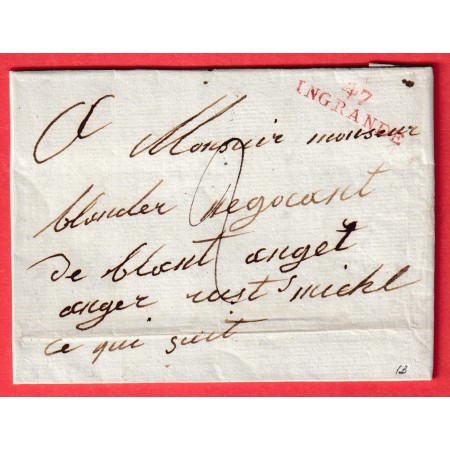 47
INGRANDE
A Monsieur monsieur
blonder negocant
de blont anget
anger rust St michl
ce qui suit